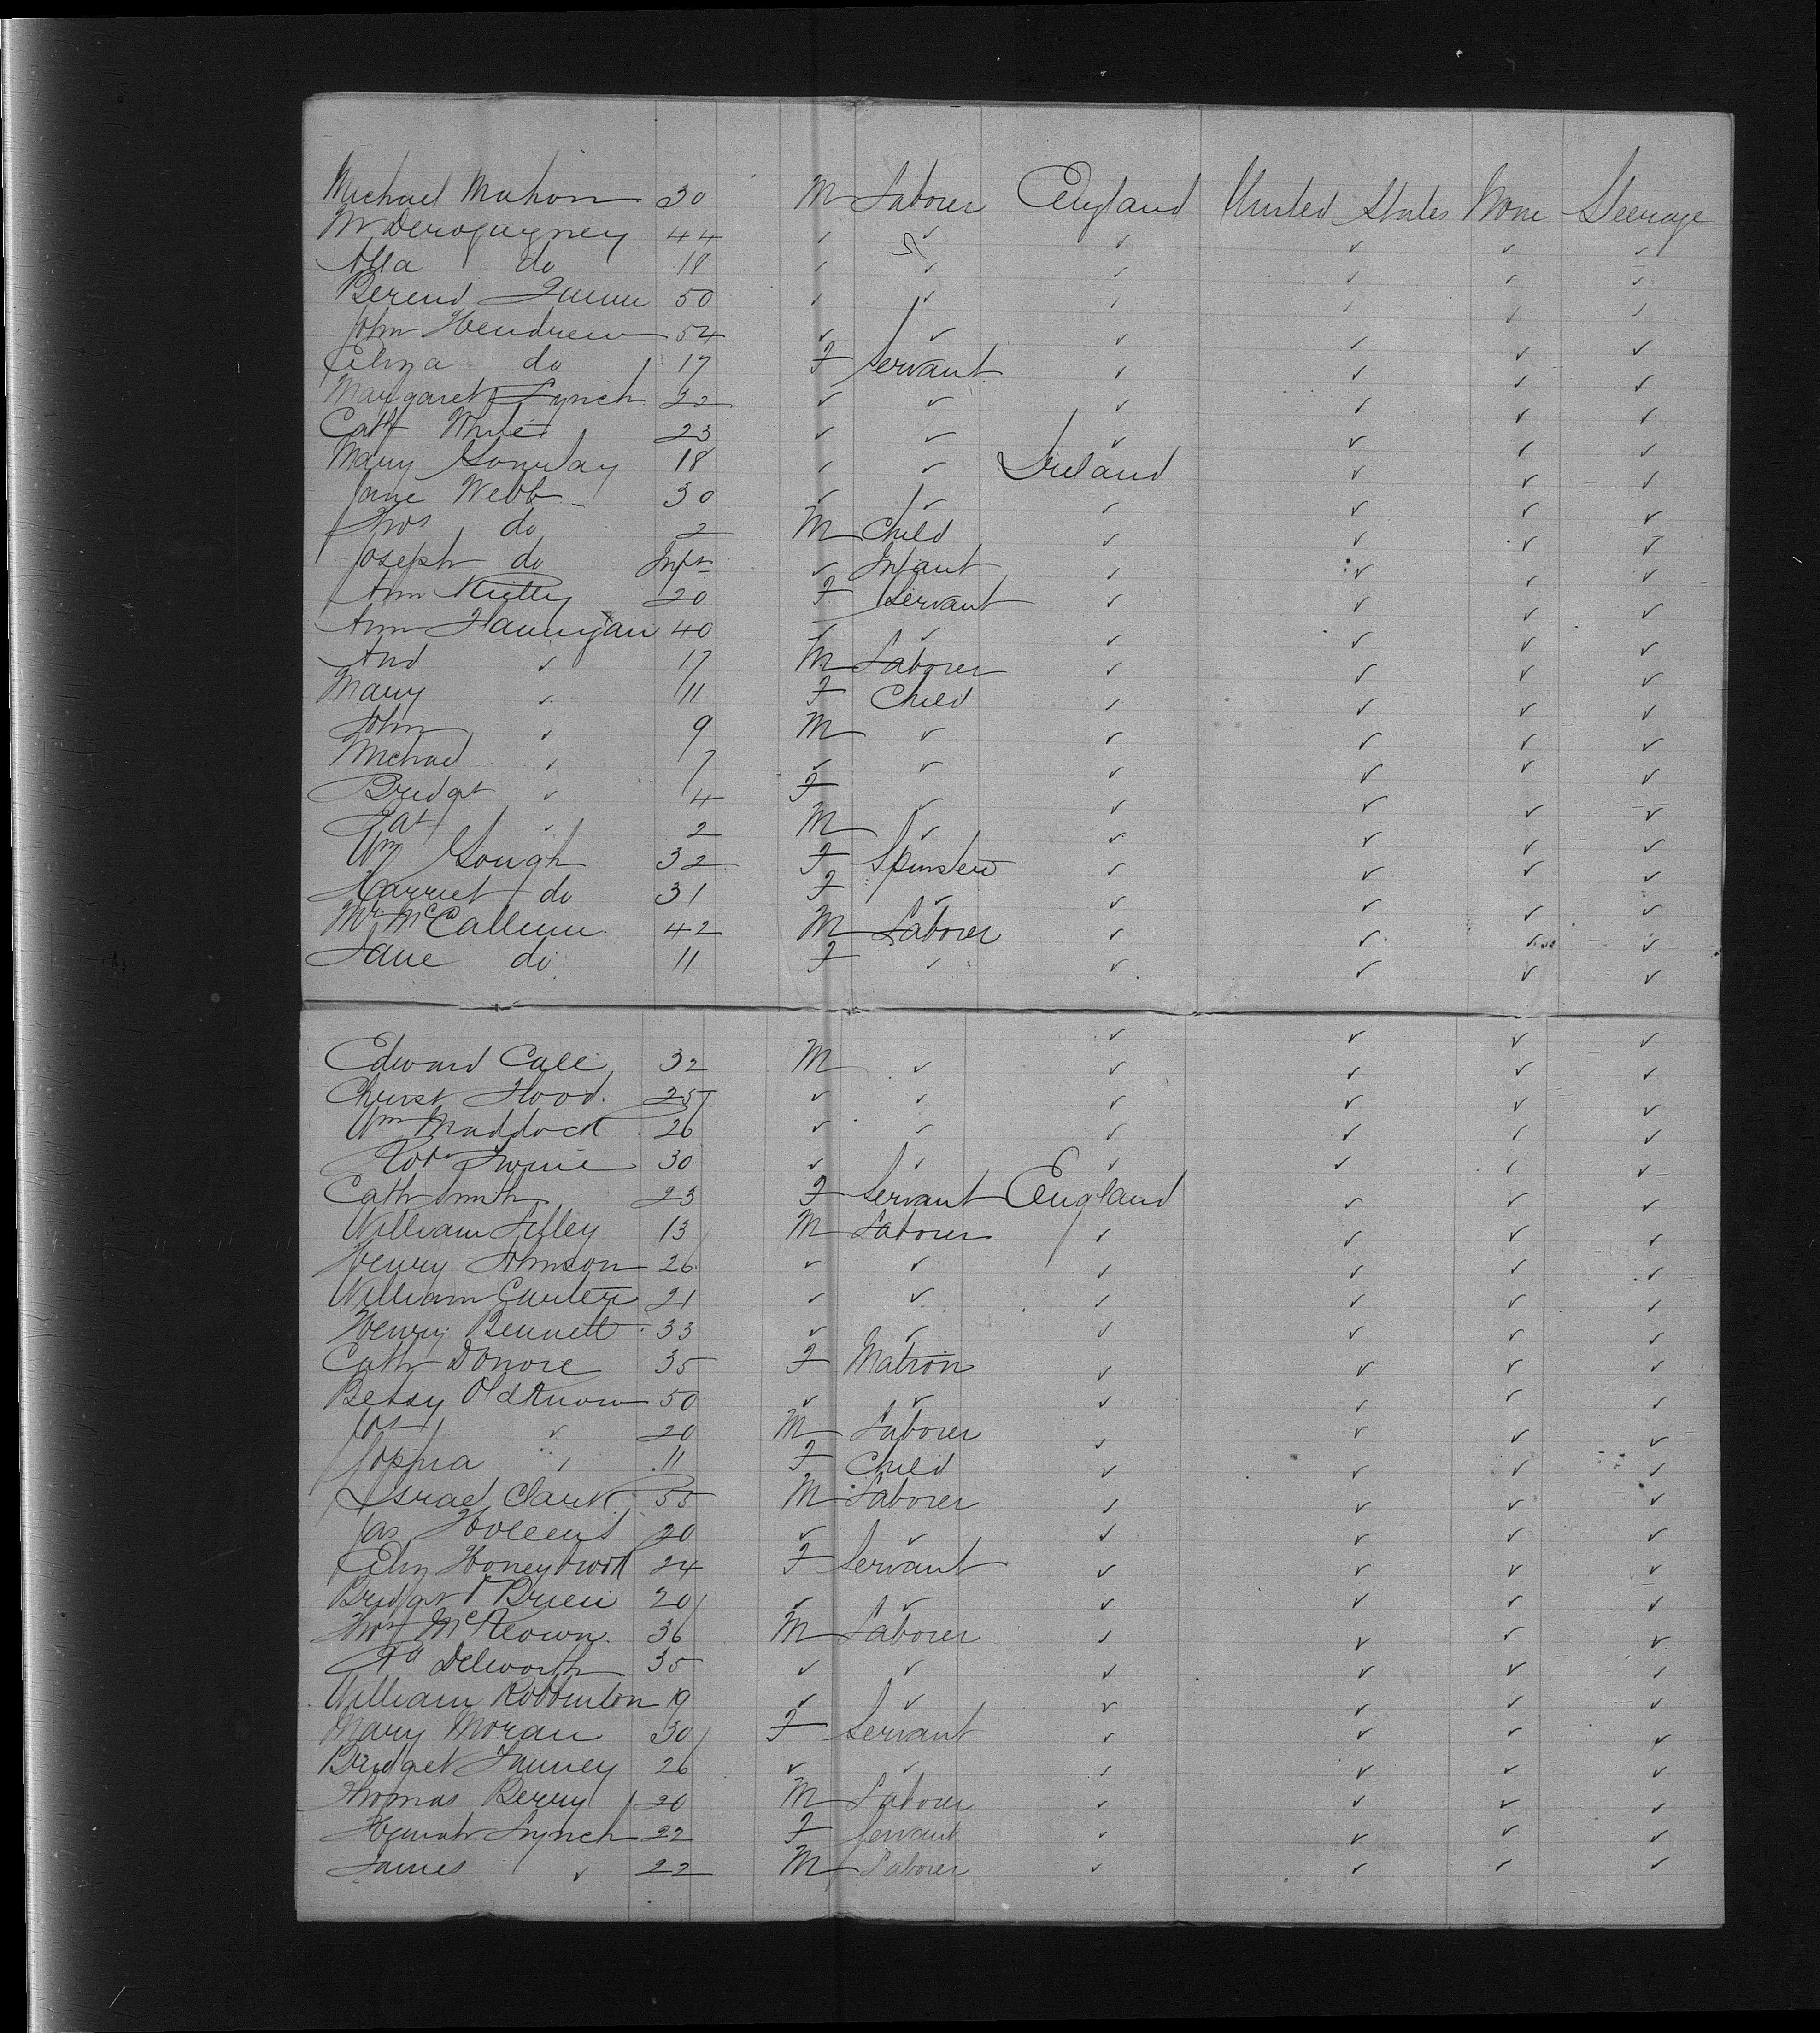 Michael Mahon 30 M Laborer England United States None Steerage
M Deroquigney 44 ✓ ✓ ✓ ✓ ✓ ✓
Alla do 18 ✓ ✓ ✓ ✓ ✓ ✓
Berend 50 ✓ ✓ ✓ ✓ ✓ ✓
John Hendrew 54 ✓ ✓ ✓ ✓ ✓ ✓
Eliza do 17 F Servant ✓ ✓ ✓ ✓
Margaret Lynch 22 ✓ ✓ ✓ ✓ ✓ ✓
Cath White 23 ✓ ✓ ✓ ✓ ✓ ✓
Mary Gourlay 18 ✓ ✓ Ireland ✓ ✓ ✓
Jane Webb 30 ✓ ✓ ✓ ✓ ✓ ✓
Thos do 2 M Child ✓ ✓ ✓ ✓
Joseph do Inft ✓ Infant ✓ ✓ ✓ ✓
Ann Kielly 20 F Servant ✓ ✓ ✓ ✓
Ann Flannigan 40 ✓ ✓ ✓ ✓ ✓ ✓
And ✓ 17 M Laborer ✓ ✓ ✓ ✓
Mary ✓ 11 F Child ✓ ✓ ✓ ✓
John ✓ 9 M ✓ ✓ ✓ ✓ ✓
Michael ✓ 7 ✓ ✓ ✓ ✓ ✓ ✓
Bridget ✓ 4 F ✓ ✓ ✓ ✓ ✓
Pat ✓ 2 M ✓ ✓ ✓ ✓ ✓
Wm Gough 32 F Spinster ✓ ✓ ✓ ✓
Harriet do 31 F ✓ ✓ ✓ ✓ ✓
Mr McCallum 42 M Laborer ✓ ✓ ✓ ✓
Jane do 11 F ✓ ✓ ✓ ✓ ✓
✓ ✓ ✓ ✓
Edward Cale 32 M ✓ ✓ ✓ ✓ ✓
Christ Flood 25 ✓ ✓ ✓ ✓ ✓ ✓
Wm Maddock 26 ✓ ✓ ✓ ✓ ✓ ✓
Robt 30 ✓ ✓ ✓ ✓ ✓ ✓
Cath Smith 23 F Servant England ✓ ✓ ✓
William Lilley 13 M Laborer ✓ ✓ ✓ ✓
Henry Johnson 26 ✓ ✓ ✓ ✓ ✓ ✓
William Carter 21 ✓ ✓ ✓ ✓ ✓ ✓
Henry Bennett 33 ✓ ✓ ✓ ✓ ✓ ✓
Cath Donore 35 F Matron ✓ ✓ ✓ ✓
Betsy Oldknow 50 ✓ ✓ ✓ ✓ ✓ ✓
Jos ✓ 20 M Laborer ✓ ✓ ✓ ✓
Sophia ✓ 11 F Child ✓ ✓ ✓ ✓
Israel Clark 55 M Laborer ✓ ✓ ✓ ✓
Jas 20 ✓ ✓ ✓ ✓ ✓ ✓
Eliz 24 F Servant ✓ ✓ ✓ ✓
Bridget O'Brien 20 ✓ ✓ ✓ ✓ ✓ ✓
Thos McKeown 36 M Laborer ✓ ✓ ✓ ✓
Delworth 35 ✓ ✓ ✓ ✓ ✓ ✓
William Robbinton 19 ✓ ✓ ✓ ✓ ✓ ✓
Mary Moran 30 F Servant ✓ ✓ ✓ ✓
Bridget 26 ✓ ✓ ✓ ✓ ✓ ✓
Thomas Berry 20 M Laborer ✓ ✓ ✓ ✓
Hannah Lynch 22 F Servant ✓ ✓ ✓ ✓
James ✓ 22 M Laborer ✓ ✓ ✓ ✓